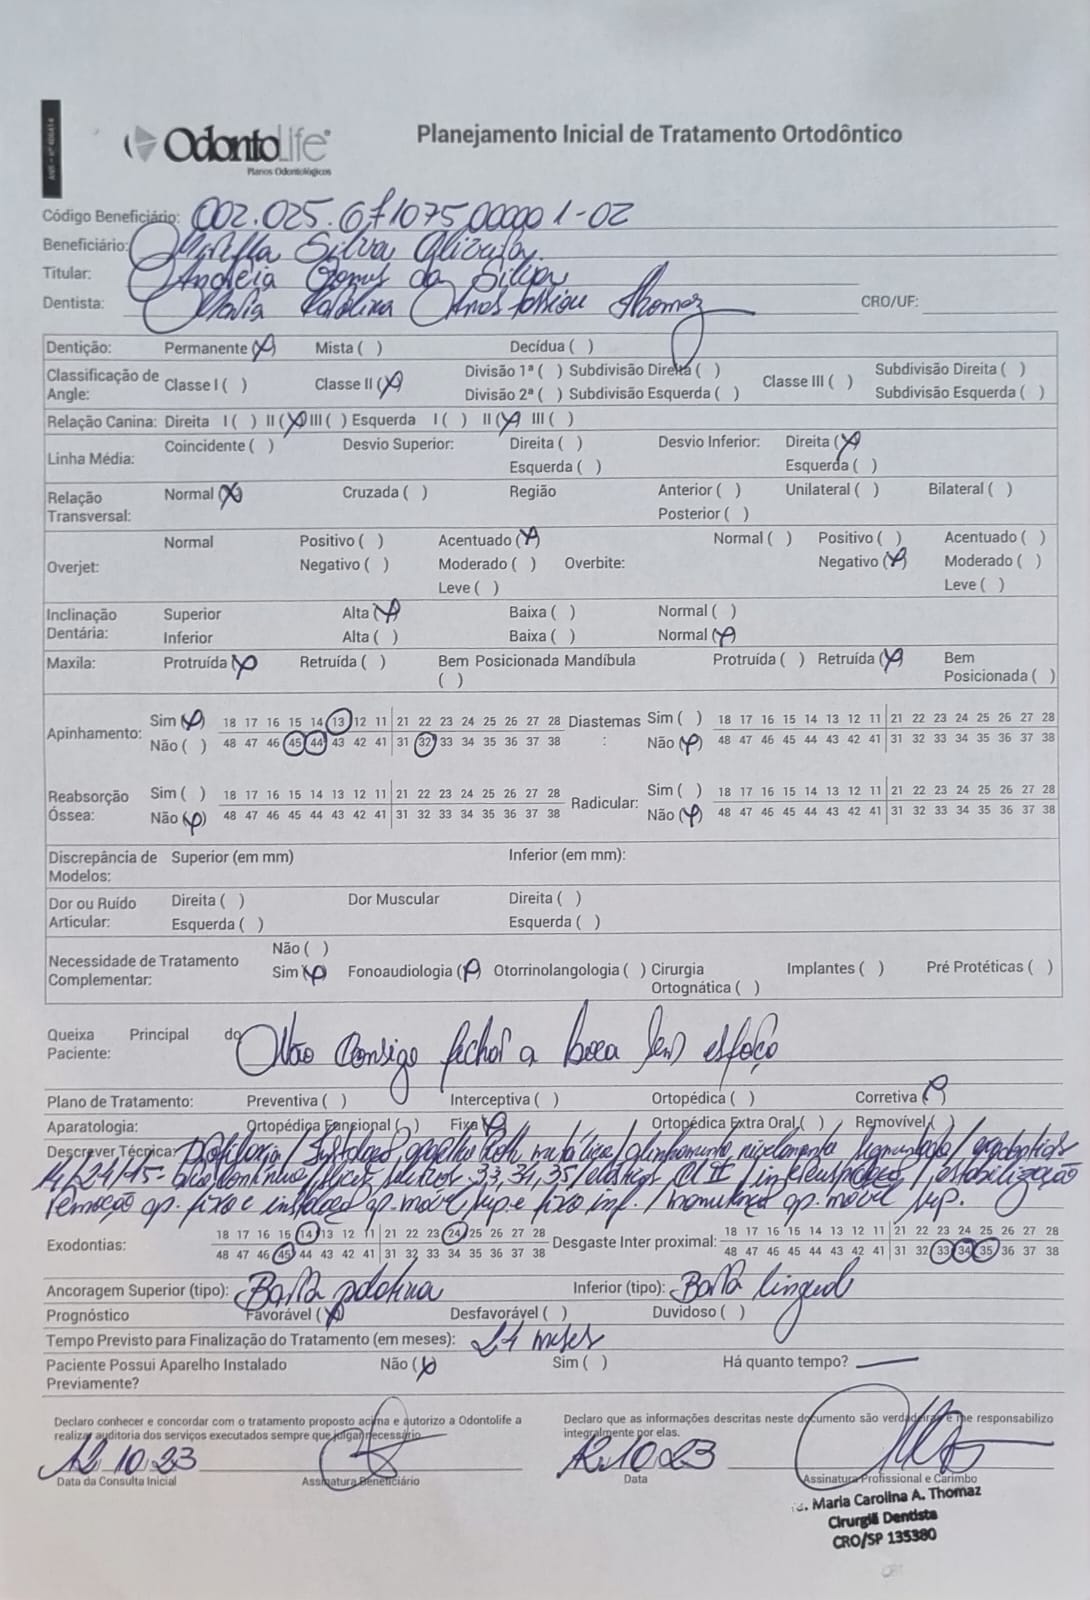 OdontoLife
Planos Odontológicos
Planejamento Inicial de Tratamento Ortodôntico
Código Beneficiário: 002.025.071075 00000 1-02
Beneficiário: Silva
Titular: Andreia Gomes da Silva
Dentista: Maria Carolina Thomaz CRO/UF:
Dentição: Permanente (X) Mista ( ) Decídua ( )
Classificação de Angle: Classe I ( ) Classe II (X) Divisão 1ª ( ) Subdivisão Direita ( ) Classe III ( ) Subdivisão Direita ( )
Divisão 2ª ( ) Subdivisão Esquerda ( ) Subdivisão Esquerda ( )
Relação Canina: Direita I ( ) II (X) III ( ) Esquerda I ( ) II (X) III ( )
Linha Média: Coincidente ( ) Desvio Superior: Direita ( ) Desvio Inferior: Direita (X)
Esquerda ( ) Esquerda ( )
Relação Transversal: Normal (X) Cruzada ( ) Região Anterior ( ) Unilateral ( ) Bilateral ( )
Posterior ( )
Normal Positivo ( ) Acentuado (X) Normal ( ) Positivo ( ) Acentuado ( )
Overjet: Negativo ( ) Moderado ( ) Overbite: Negativo (X) Moderado ( )
Leve ( ) Leve ( )
Inclinação Superior Alta (X) Baixa ( ) Normal ( )
Dentária: Inferior Alta ( ) Baixa ( ) Normal (X)
Maxila: Protruída (X) Retruída ( ) Bem Posicionada ( ) Mandíbula Protruída ( ) Retruída (X) Bem Posicionada ( )
Apinhamento: Sim (X) 18 17 16 15 14 13 12 11 21 22 23 24 25 26 27 28 Diastemas: Sim ( ) 18 17 16 15 14 13 12 11 21 22 23 24 25 26 27 28
Não ( ) 48 47 46 45 44 43 42 41 31 32 33 34 35 36 37 38 Não (X) 48 47 46 45 44 43 42 41 31 32 33 34 35 36 37 38
Reabsorção Óssea: Sim ( ) 18 17 16 15 14 13 12 11 21 22 23 24 25 26 27 28 Radicular: Sim ( ) 18 17 16 15 14 13 12 11 21 22 23 24 25 26 27 28
Não (X) 48 47 46 45 44 43 42 41 31 32 33 34 35 36 37 38 Não (X) 48 47 46 45 44 43 42 41 31 32 33 34 35 36 37 38
Discrepância de Modelos: Superior (em mm) Inferior (em mm):
Dor ou Ruído Direita ( ) Dor Muscular Direita ( )
Articular: Esquerda ( ) Esquerda ( )
Necessidade de Tratamento Complementar: Não ( )
Sim (X) Fonoaudiologia (X) Otorrinolangologia ( ) Cirurgia Ortognática ( ) Implantes ( ) Pré Protéticas ( )
Queixa Principal do Paciente: Não consigo fechar a boca sem esfoço
Plano de Tratamento: Preventiva ( ) Interceptiva ( ) Ortopédica ( ) Corretiva (X)
Aparatologia: Ortopédica Funcional ( ) Fixa (X) Ortopédica Extra Oral ( ) Removível ( )
Descrever Técnica: Profilaxia / Instalação aparelho Roth metálico / alinhamento, nivelamento / exodontias
14/24/45 - 33,34,35 / elásticos Cl II / intercuspidação / estabilização
remoção ap. fixo e instalação ap. móvel sup. e fixo inf. / manutenção ap. móvel sup.
Exodontias: 18 17 16 15 14 13 12 11 21 22 23 24 25 26 27 28 Desgaste Inter proximal: 18 17 16 15 14 13 12 11 21 22 23 24 25 26 27 28
48 47 46 45 44 43 42 41 31 32 33 34 35 36 37 38 48 47 46 45 44 43 42 41 31 32 33 34 35 36 37 38
Ancoragem Superior (tipo): Barra palatina Inferior (tipo): Barra lingual
Prognóstico Favorável (X) Desfavorável ( ) Duvidoso ( )
Tempo Previsto para Finalização do Tratamento (em meses): 24 meses
Paciente Possui Aparelho Instalado Previamente? Não (X) Sim ( ) Há quanto tempo?
Declaro conhecer e concordar com o tratamento proposto acima e autorizo a Odontolife a
realizar auditoria dos serviços executados sempre que julgar necessário.
Declaro que as informações descritas neste documento são verdadeiras e me responsabilizo
integralmente por elas.
12.10.23 12.10.23
Data da Consulta Inicial Assinatura Beneficiário Data Assinatura Profissional e Carimbo
Maria Carolina A. Thomaz
Cirurgiã Dentista
CRO/SP 135380